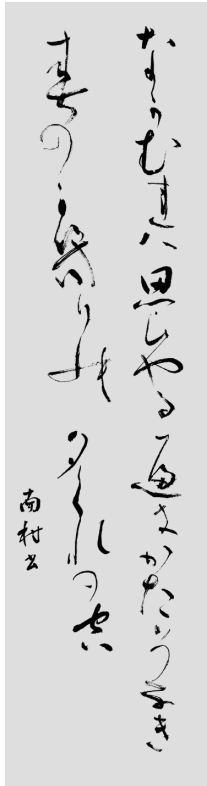 なかむれハ思ひやる遍きかたそなき
春のかきりの夕くれの空
南村書